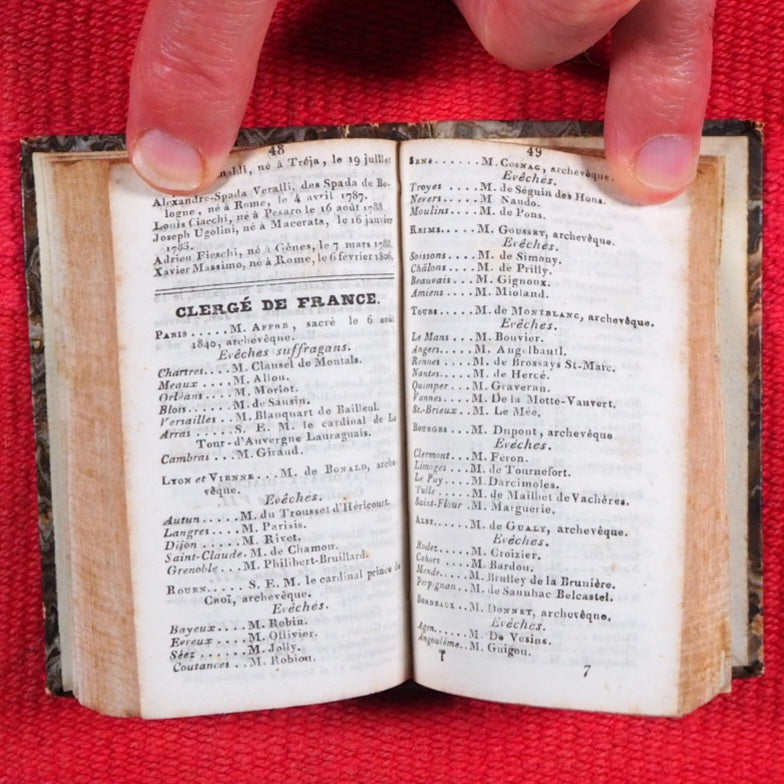 48
naldi, né à Tréja, le 19 juillet
Alexandre-Spada Veralli, des Spada de Bo-
logne, né à Rome, le 4 avril 1787.
Louis Ciacchi, né à Pesaro le 16 août 1788
Joseph Ugolini, né à Macerata, le 16 janvier
1783.
Adrien Fieschi, né à Gênes, le 7 mars 1788.
Xavier Massimo, né à Rome, le 6 février 1806.
CLERGÉ DE FRANCE.
PARIS.....M. AFFRE, sacré le 6 août
1840, archevêque.
Evêches suffragans.
Chartres....M. Clausel de Montals.
Meaux ....M. Allou.
Orléans....M. Morlot.
Blois......M. de Sausin.
Versailles..M. Blanquart de Bailleul.
Arras .....S. E. M. le cardinal de La
Tour-d'Auvergne Lauraguais.
Cambrai ...M. Giraud.
LYON et VIENNE...M. de BONALD, arche
vêque.
Evêches.
Autun.....M. du Trousset d'Héricourt.
Langres....M. Parisis.
Dijon .....M. Rivet.
Saint-Claude. M. de Chamon.
Grenoble...M. Philibert-Bruillard.
ROUEN.....S. E. M. le cardinal prince de
Croï, archevêque.
Evêches.
Bayeux....M. Robin.
Evreux ....M. Ollivier.
Séez ......M. Jolly.
Coutances ..M. Robiou.
49
SENS......M. COSNAC, archevêque.
Evêches.
Troyes ....M. de Séguin des Hons.
Nevers.....M. Nando.
Moulins....M. de Pons.
REIMS.....M. GOUSSET, archevêque.
Evêches.
Soissons....M. de Simony.
Châlons....M. de Prilly.
Beauvais...M. Gignoux.
Amiens ....M. Mioland.
TOURS.....M. de MONTBLANC, archevêque.
Evêches.
Le Mans ...M. Bouvier.
Angers.....M. Angebault.
Rennes ....M. de Brossays St-Marc.
Nantes.....M. de Hercé.
Quimper ...M. Graveran.
Vannes....M. De la Motte-Vauvert.
St.-Brieux..M. Le Mée.
BOURGES ...M. Dupont, archevêque
Evêches.
Clermont...M. Féron.
Limoges ...M. de Tournefort.
Le Puy.....M. Darcimoles.
Tulle .....M. de Mailhet de Vachères.
Saint-Flour .M. Marguerie.
ALBY......M. de GUALY, archevêque.
Evêches.
Rodez......M. Croizier.
Cahors ....M. Bardou.
Mende.....M. Brulley de la Brunière.
Perpignan..M. de Saunhac Belcastel.
BORDEAUX..M. DONNET, archevêque.
Evêches.
Agen......M. De Vesins.
Angoulême..M. Guigou.
T
7